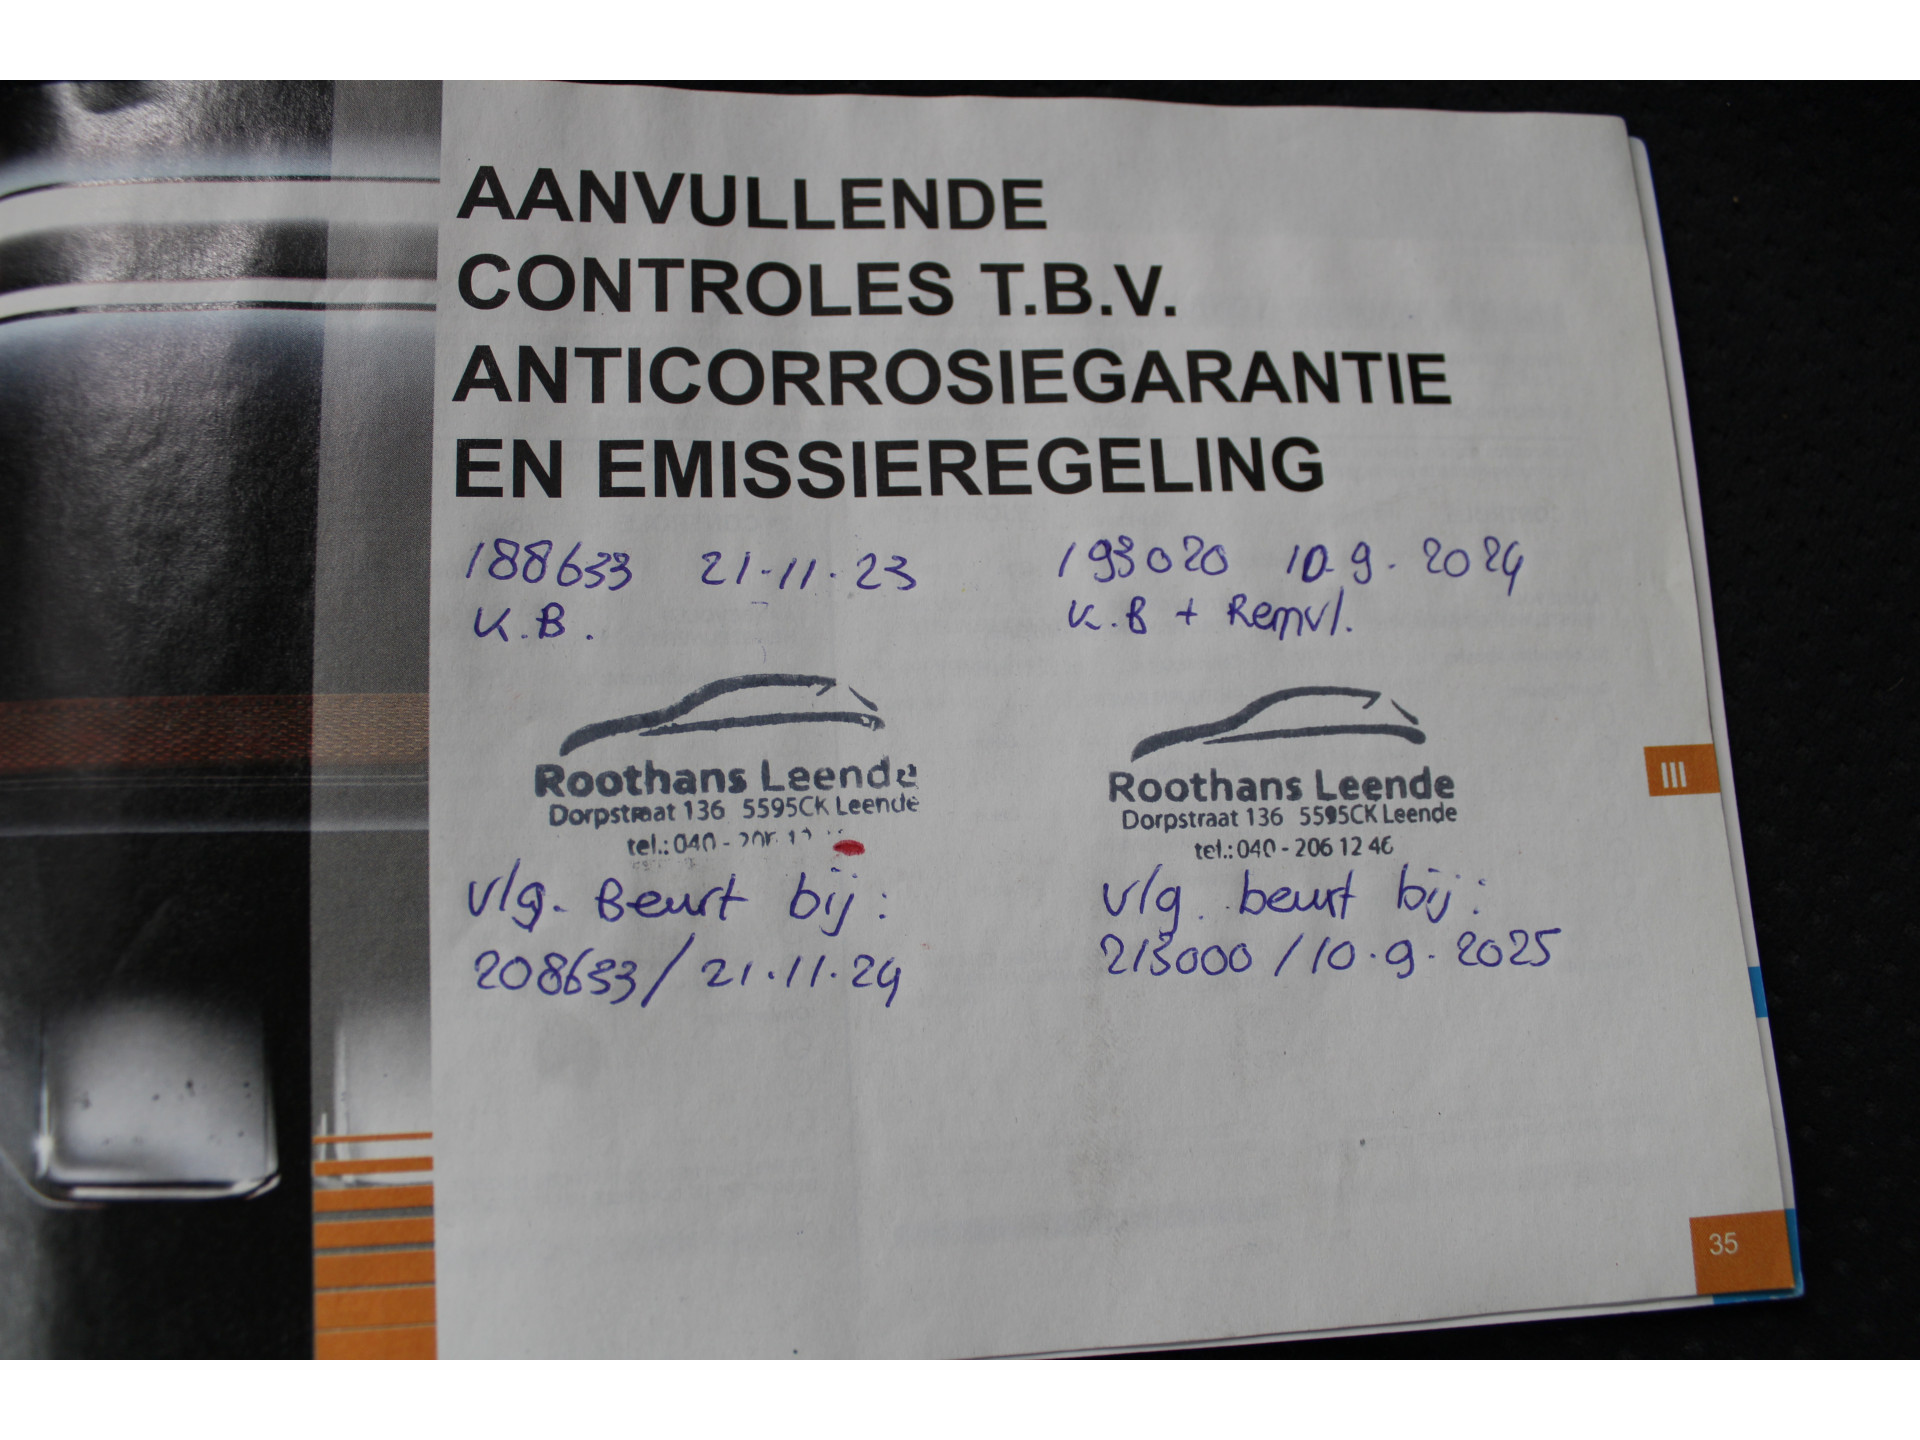 AANVULLENDE
CONTROLES T.B.V.
ANTICORROSIEGARANTIE
EN EMISSIEREGELING
188633 21-11-23
K.B.
Roothans Leende
Dorpstraat 136 5595CK Leende
tel.: 040 - 206
vlg. Beurt bij:
208633/21.11.24
193020 10.9.2024
K.B + Remvl.
Roothans Leende
Dorpstraat 136 5595CK Leende
tel.: 040 - 206 12 46
vlg. beurt bij:
213000/10.9.2025
III
35